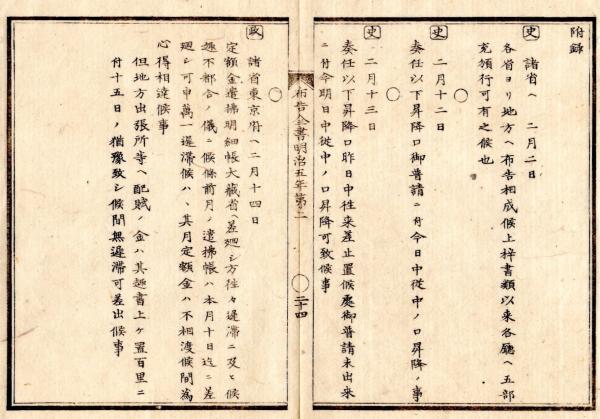 附録
史 諸省ヘ 二月二日
各省ヨリ地方ヘ布告相成候上梓書類以来各廳ヘ五部
充頒行可有之候也
史 二月十二日
奏任以下昇降口御普請ニ付今日中従中ノ口昇降ノ事
史 二月十三日
奏任以下昇降口昨日中往来差止置候處御普請未出来
ニ付今明日中従中ノ口昇降可致候事
布告全書明治五年第二 二十四
政 諸省東京府ヘ二月十四日
定額金遣拂明細帳大藏省ヘ差廻シ方往々遅滞ニ及ヒ候
趣不都合ノ儀ニ候條前月ノ遣拂帳ハ本月十日迄ニ差
廻シ可申萬一遅滞候ハヽ其月定額金ハ不相渡候間為
心得相達候事
但地方出張所等ヘ配賦ノ金ハ其趣書上ケ置百里ニ
付十五日ノ猶豫致シ候間無遅滞可差出候事